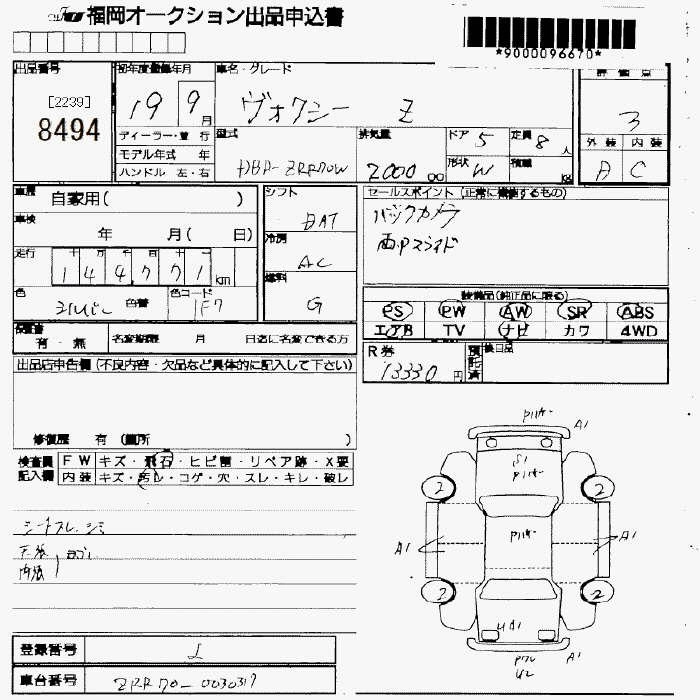 福岡オークション出品申込書
*9000096670*
出品番号
[2239]
8494
初年度登録年月
19 9月
車名・グレード
ヴォクシー Z
評価点
3
ディーラー・並行
モデル年式 年
ハンドル 左・右
型式
DBA-ZRR70W
排気量
2000 cc
ドア 5
定員 8人
形状 W
積載 kg
外装 内装
A C
車歴 自家用( )
車検 年 月( 日)
走行 144,771 km
十 万 千 百 十 一
色 シルバー 色替
色コード 1F7
シフト
DAT
冷房
AC
燃料
G
セールスポイント (正常に機能するもの)
バックカメラ
両Pスライド
装備品(純正品に限る)
PS PW AW SR ABS
エアB TV ナビ カワ 4WD
保証書
有・無
名変期限 月 日迄に名変できる方
R券
13330円
預託済
後日品
出品店申告欄(不良内容・欠品など具体的に記入して下さい)
修復歴 有 (箇所 )
検査員記入欄
FW キズ・飛石・ヒビ割・リペア跡・X要
内装 キズ・汚レ・コゲ・穴・スレ・キレ・破レ
シートスレ、シミ
天張 ヨゴレ
内張
A1
S1
2 2
A1 A1
2 2
UA1
A1
U2
登録番号
車台番号 ZRR70-0030317